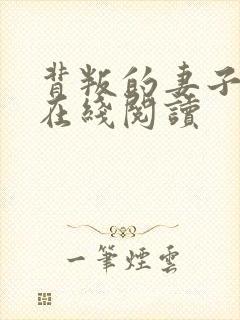 背叛的妻子
在綫閱讀
一筆煙雲